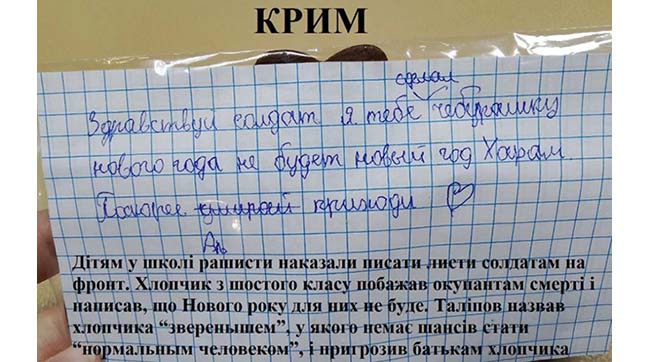 КРИМ
сделал
Здравствуй солдат я тебе чебурашку
нового года не будет новый год Харам.
Поскорее умирай приходи
Дітям у школі рашисти наказали писати листи солдатам на
фронт. Хлопчик з шостого класу побажав окупантам смерті і
написав, що Нового року для них не буде. Таліпов назвав
хлопчика “зверенышем”, у якого немає шансів стати
“нормальным человеком”, і пригрозив батькам хлопчика